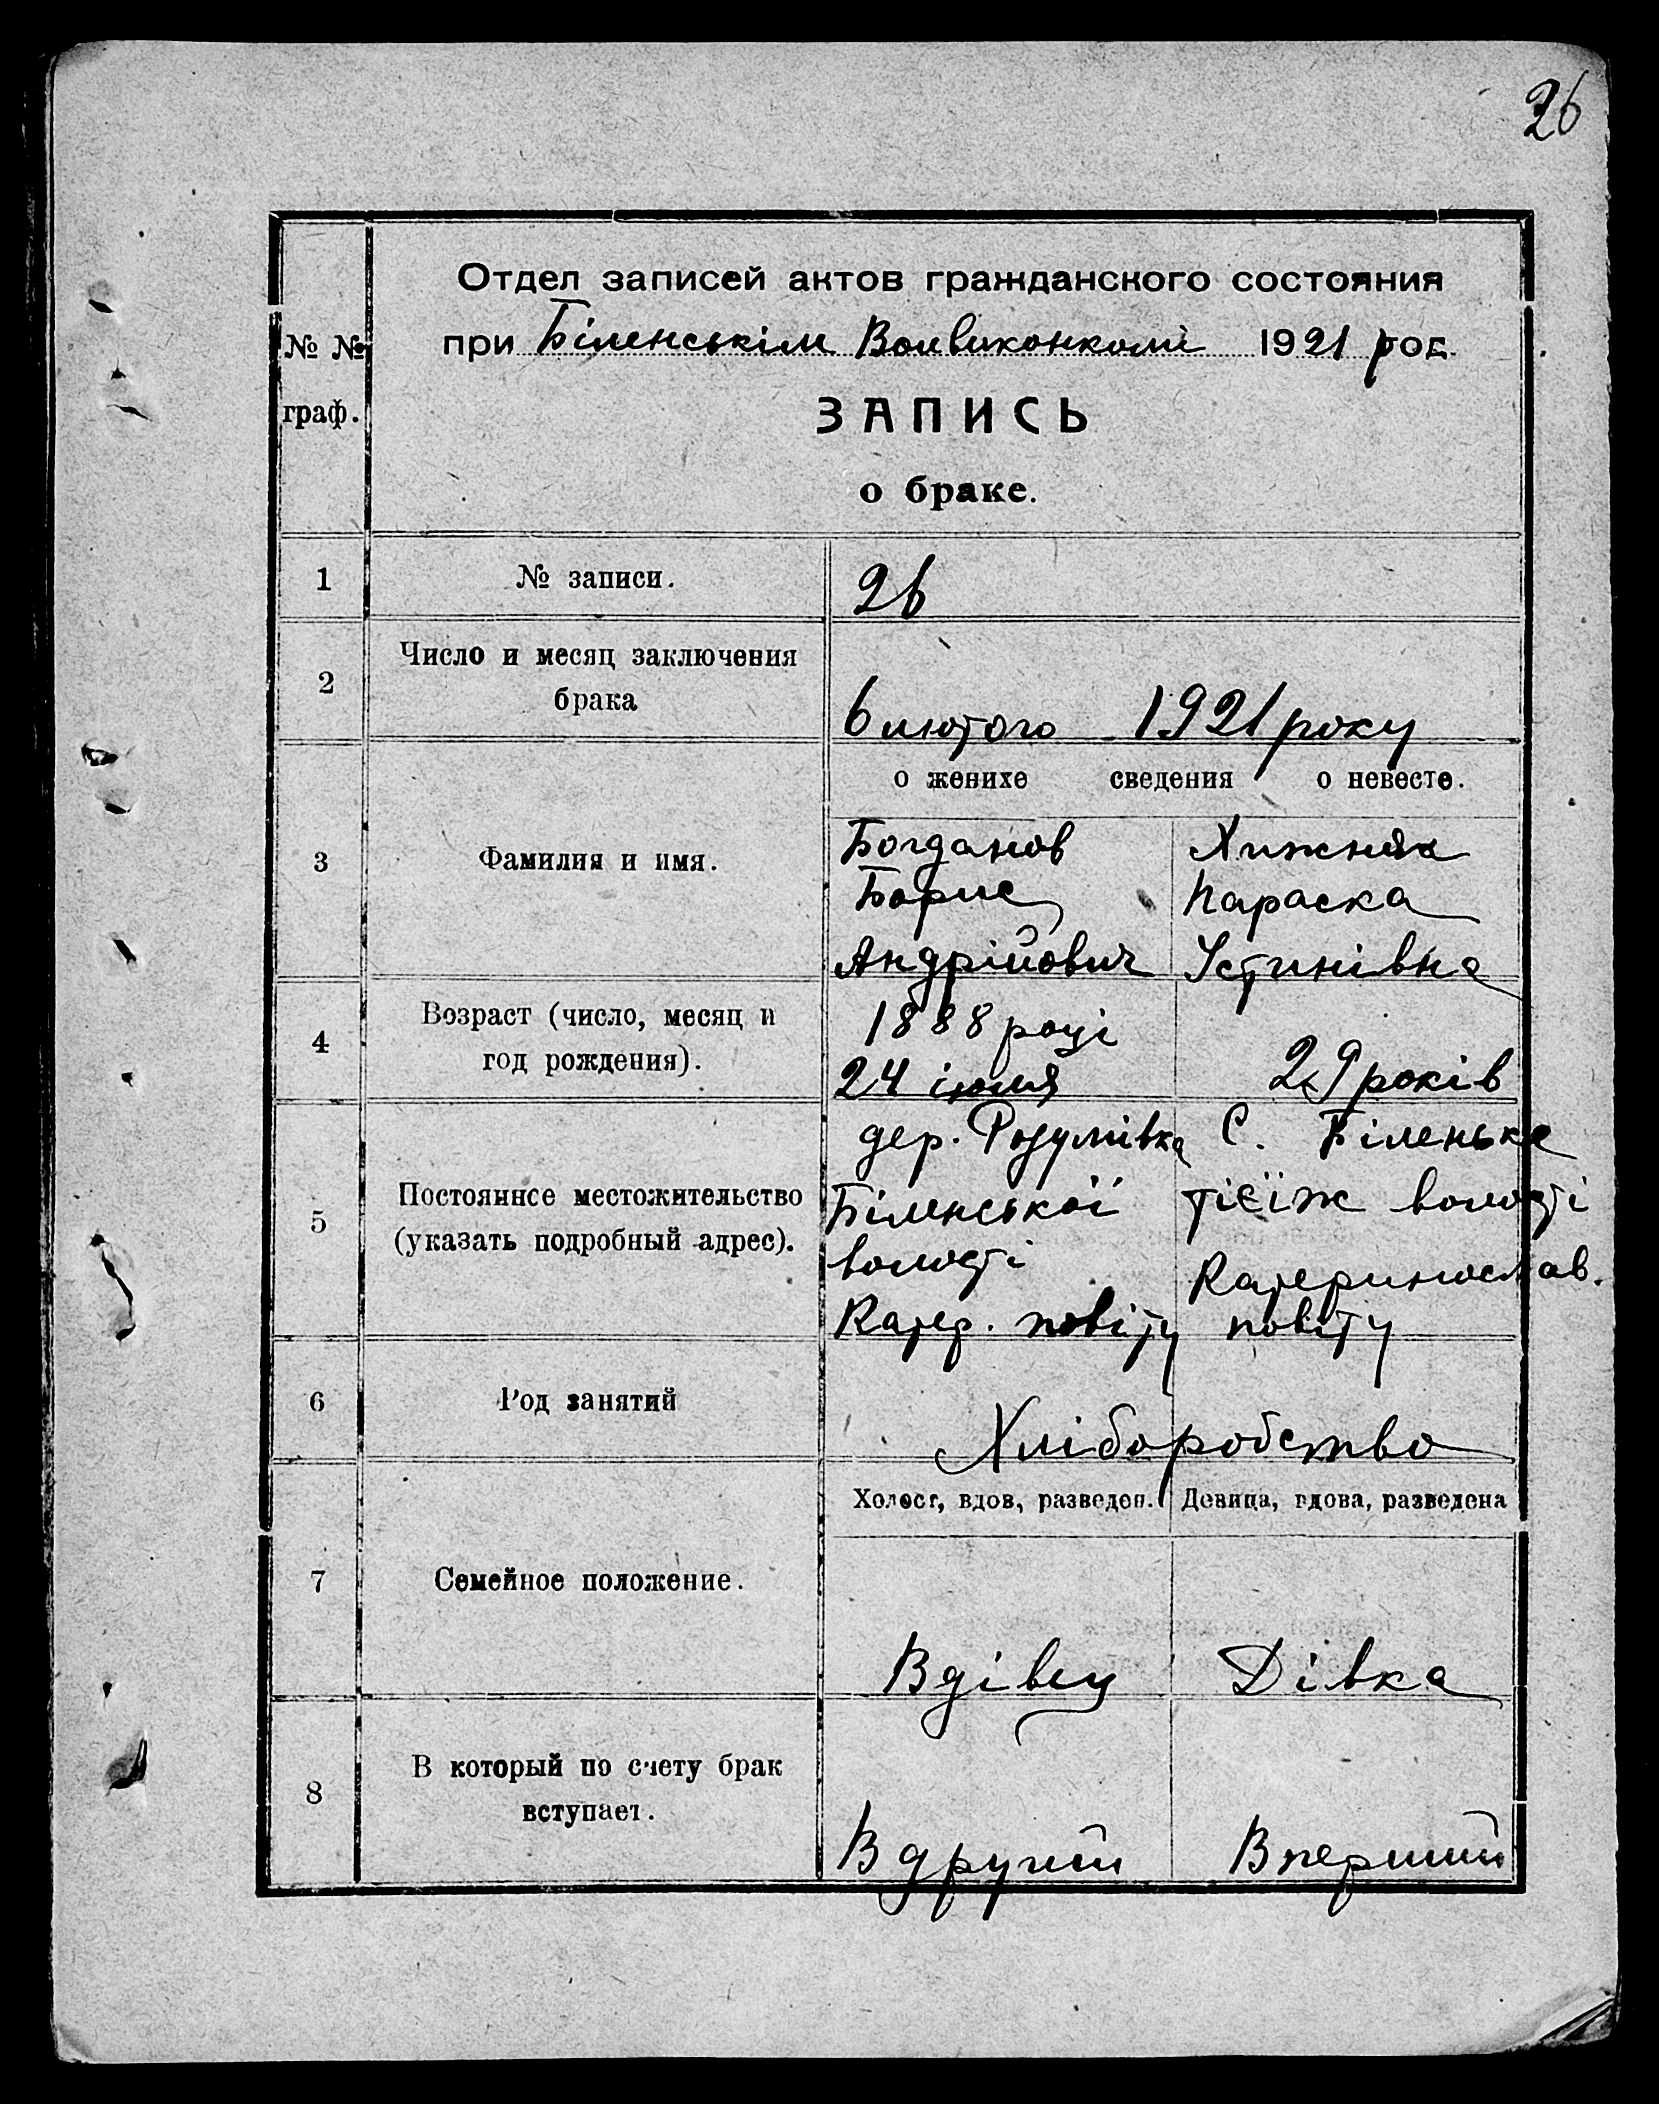 26
Отдел записей актов гражданского состояния
при Біленськім Волвиконкомі 1921 год.
№ №
граф.
ЗАПИСЬ
о браке.
1 № записи. 26
2 Число и месяц заключения
брака
6 лютого 1921 року
о женихе сведения о невесте.
3 Фамилия и имя.
Богданов Хижняк
Борис Параска
Андрійович Устинівна
4 Возраст (число, месяц и
год рождения).
1888 році
24 іюля 29 років
5 Постоянное местожительство
(указать подробный адрес).
дер. Розумівка С. Біленьке
Біленської тієїж волості
волості Катеринослав.
Катер. повіту повіту
6 Род занятий Хліборобство
Холост, вдов, разведен. Девица, вдова, разведена
7 Семейное положение.
Вдівец Дівка
8 В который по счету брак
вступает.
В другий В перший